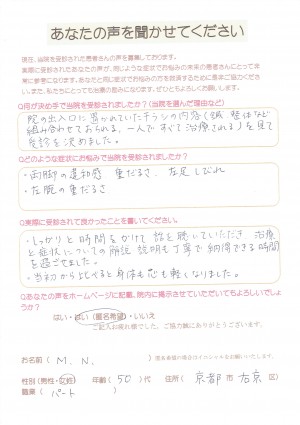 あなたの声を聞かせてください
現在、当院を受診された患者さんの声を募集しております。
実際に受診されたあなたの声が、同じような症状でお悩みの未来の患者さんにとって非
常に参考になります。あなたと同じ症状でお悩みの方を救済するために是非ご協力くださ
い。また、私たちにとっても治療の励みになります。ぜひともよろしくお願いします。
Q何が決め手で当院を受診されましたか？(当院を選んだ理由など)
院の出入口に置かれていたチラシの内容(鍼、整体など
組み合わせておられる、一人ですべて治療される)を見て
受診を決めました。
Qどのような症状にお悩みで当院を受診されましたか？
・両脚の違和感 重だるさ、左足しびれ
・左腕の重だるさ
Q実際に受診されて良かったことを書いてください。
・しっかりと時間をかけて話を聴していただき、治療
と症状についての解説、説明も丁寧で納得できる時間
を過ごせました。
・当初から比べると身体も心も軽くなりました。
Qあなたの声をホームページに記載、院内に掲示させていただいてもよろしいでしょ
うか？
はい・はい(匿名希望)・いいえ
ご記入お疲れ様でした。ご協力誠にありがとうございます。
お名前( M. N. )
匿名希望の場合はイニシャルをお願いいたします。
性別(男性・女性) 年齢(50)代 住所(京都市右京区)
職業(パート)